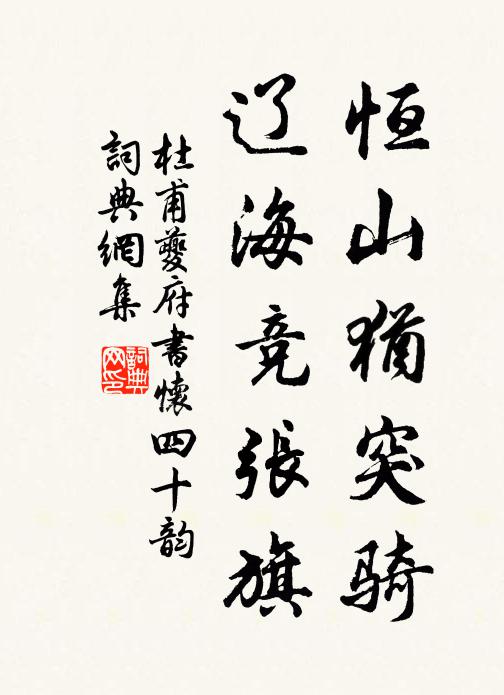 恒山猶突骑
辽海竞張旗
杜甫夔府書懷四十韵
詞典網集
詞典网印